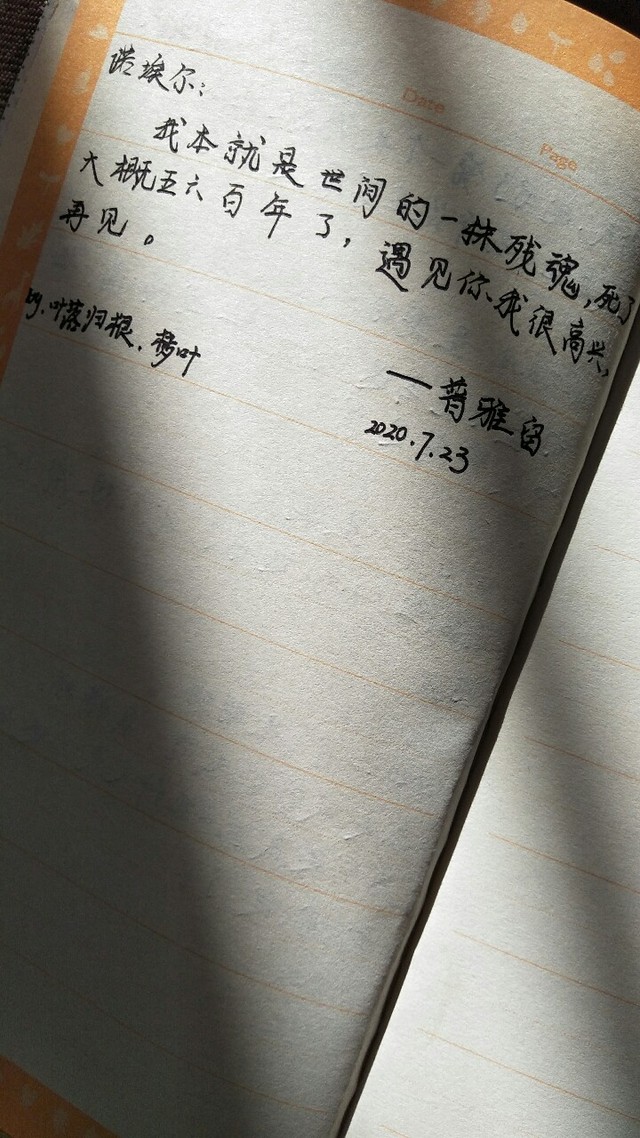 Date
Page
诺埃尔：
我本就是世间的一抹残魂，死了
大概五六百年了，遇见你我很高兴，
再见。
——普雅留
2020.7.23
by.叶落归根.梦叶